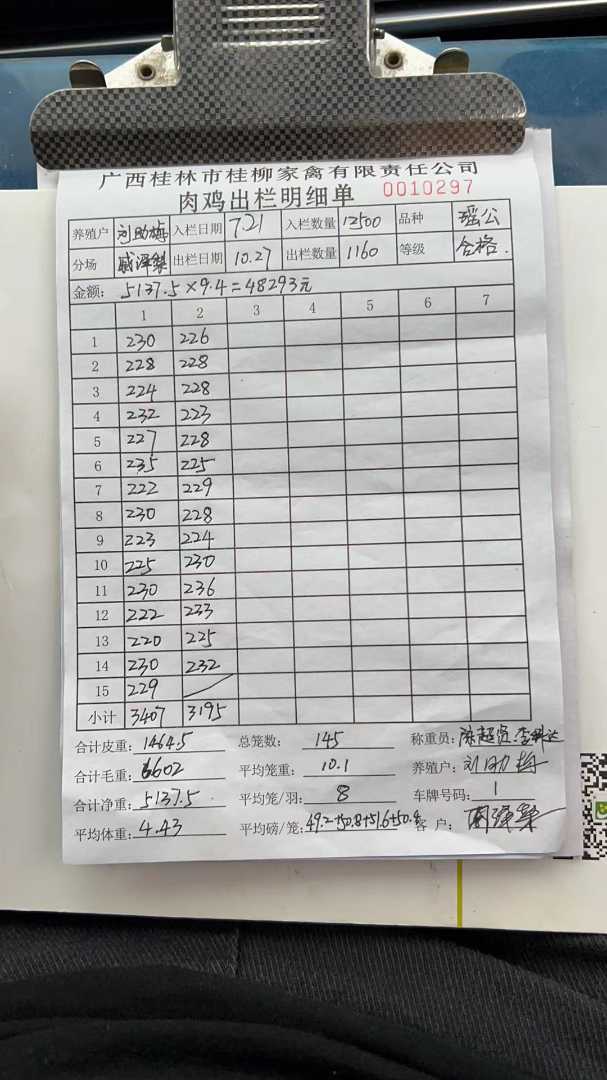 广西桂林市桂柳家禽有限责任公司
肉鸡出栏明细单 0010297
养殖户 刘助梅 入栏日期 7.21 入栏数量 12500 品种 瑶公
分场 出栏日期 10.27 出栏数量 1160 等级 合格.
金额: 5137.5×9.4=48293元
1 2 3 4 5 6 7
1 230 226
2 228 228
3 224 228
4 232 223
5 227 228
6 235 225
7 222 229
8 230 228
9 223 224
10 225 230
11 230 236
12 222 233
13 220 225
14 230 232
15 229
小计 3407 3195
合计皮重: 1464.5 总笼数: 145 称重员:
合计毛重: 6602 平均笼重: 10.1 养殖户: 刘助梅
合计净重: 5137.5 平均笼/羽: 8 车牌号码: 1
平均体重: 4.43 平均磅/笼: 49.2+50.8+51.6+50.8 客 户: